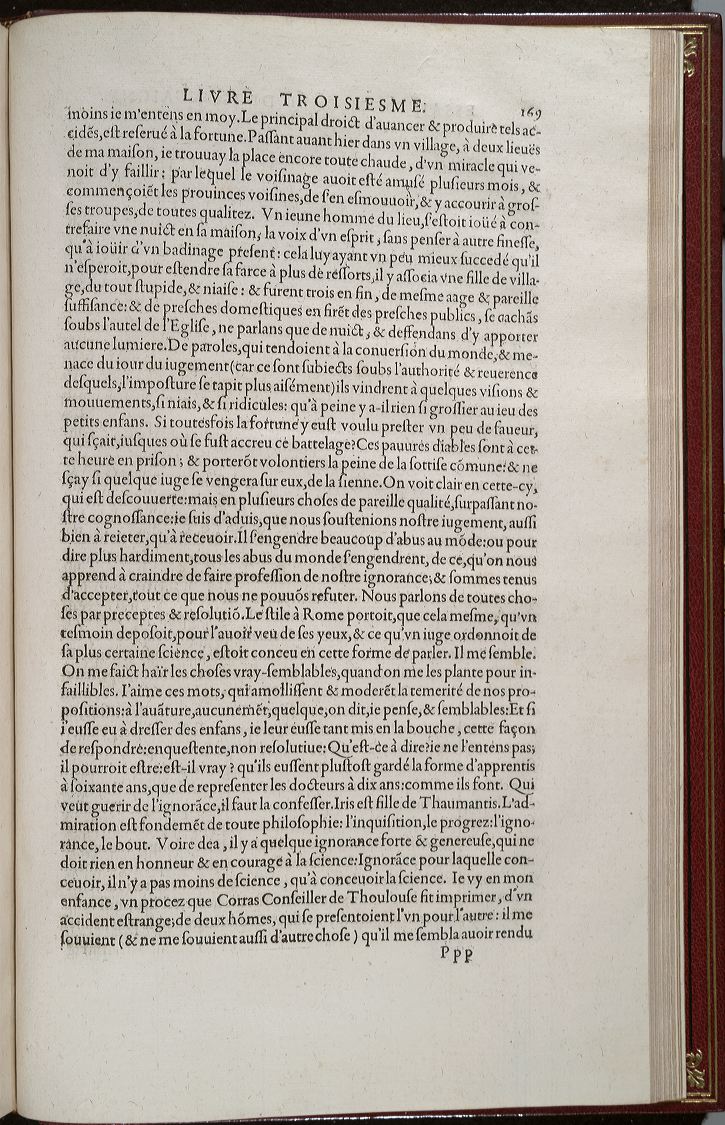 LIVRE TROISIESME. 169
moins ie m'entens en moy. Le principal droict d'auancer & produire tels ac-
cidēs, eſt reſerué à la fortune. Paſſant auant hier dans vn village, à deux lieuës
de ma maiſon, ie trouuay la place encore toute chaude, d'vn miracle qui ve-
noit d'y faillir: par lequel le voiſinage auoit eſté amuſé pluſieurs mois, &
commençoiēt les prouinces voiſines, de ſ'en eſmouuoir, & y accourir à groſ-
ſes troupes, de toutes qualitez. Vn ieune homme du lieu, ſ'eſtoit ioüé à con-
trefaire vne nuict en ſa maiſon, la voix d'vn eſprit, ſans penſer à autre fineſſe,
qu'à ioüir d'vn badinage preſent: cela luy ayant vn peu mieux ſuccedé qu'il
n'eſperoit, pour eſtendre ſa farce à plus de reſſorts, il y aſſocia vne fille de villa-
ge, du tout ſtupide, & niaiſe: & furent trois en fin, de meſme aage & pareille
ſuffiſance: & de preſches domeſtiques en firēt des preſches publics, ſe cachās
ſoubs l'autel de l'Egliſe, ne parlans que de nuict, & deffendans d'y apporter
aucune lumiere. De paroles, qui tendoient à la conuerſion du monde, & me-
nace du iour du iugement (car ce ſont ſubiects ſoubs l'authorité & reuerence
deſquels, l'impoſture ſe tapit plus aiſément) ils vindrent à quelques viſions &
mouuements, ſi niais, & ſi ridicules: qu'à peine y a-il rien ſi groſſier au ieu des
petits enfans. Si toutesfois la fortune y euſt voulu preſter vn peu de faueur,
qui ſçait, iuſques où ſe fuſt accreu ce battelage? Ces pauures diables ſont à cet-
te heure en priſon; & porterōt volontiers la peine de la ſottiſe cōmune: & ne
ſçay ſi quelque iuge ſe vengera ſur eux, de la ſienne. On voit clair en cette-cy,
qui eſt deſcouuerte: mais en pluſieurs choſes de pareille qualité, ſurpaſſant no-
ſtre cognoſſance: ie ſuis d'aduis, que nous ſouſtenions noſtre iugement, auſſi
bien à reieter, qu'à receuoir. Il ſ'engendre beaucoup d'abus au mōde: ou pour
dire plus hardiment, tous les abus du monde ſ'engendrent, de ce, qu'on nous
apprend à craindre de faire profeſſion de noſtre ignorance; & ſommes tenus
d'accepter, tout ce que nous ne pouuōs refuter. Nous parlons de toutes cho-
ſes par preceptes & reſolutiō. Le ſtile à Rome portoit, que cela meſme, qu'vn
teſmoin depoſoit, pour l'auoir veu de ſes yeux, & ce qu'vn iuge ordonnoit de
ſa plus certaine ſcience, eſtoit conceu en cette forme de parler. Il me ſemble.
On me faict haïr les choſes vray-ſemblables, quand on me les plante pour in-
faillibles. I'aime ces mots, qui amolliſſent & moderēt la temerité de nos pro-
poſitions: à l'auāture, aucunemēt, quelque, on dit, ie penſe, & ſemblables: Et ſi
i'euſſe eu à dreſſer des enfans, ie leur euſſe tant mis en la bouche, cette façon
de reſpondre: enqueſtente, non reſolutiue: Qu'eſt-ce à dire? ie ne l'entens pas;
il pourroit eſtre: eſt-il vray? qu'ils euſſent pluſtoſt gardé la forme d'apprentis
à ſoixante ans, que de repreſenter les docteurs à dix ans: comme ils font. Qui
veut guerir de l'ignorāce, il faut la confeſſer. Iris eſt fille de Thaumantis. L'ad-
miration eſt fondemēt de toute philoſophie: l'inquiſition, le progrez: l'igno-
rance, le bout. Voire dea, il y a quelque ignorance forte & genereuſe, qui ne
doit rien en honneur & en courage à la ſcience: Ignorāce pour laquelle con-
ceuoir, il n'y a pas moins de ſcience, qu'à conceuoir la ſcience. Ie vy en mon
enfance, vn procez que Corras Conſeiller de Thoulouſe fit imprimer, d'vn
accident eſtrange; de deux hōmes, qui ſe preſentoient l'vn pour l'autre: il me
ſouuient (& ne me ſouuient auſſi d'autre choſe) qu'il me ſembla auoir rendu
Ppp